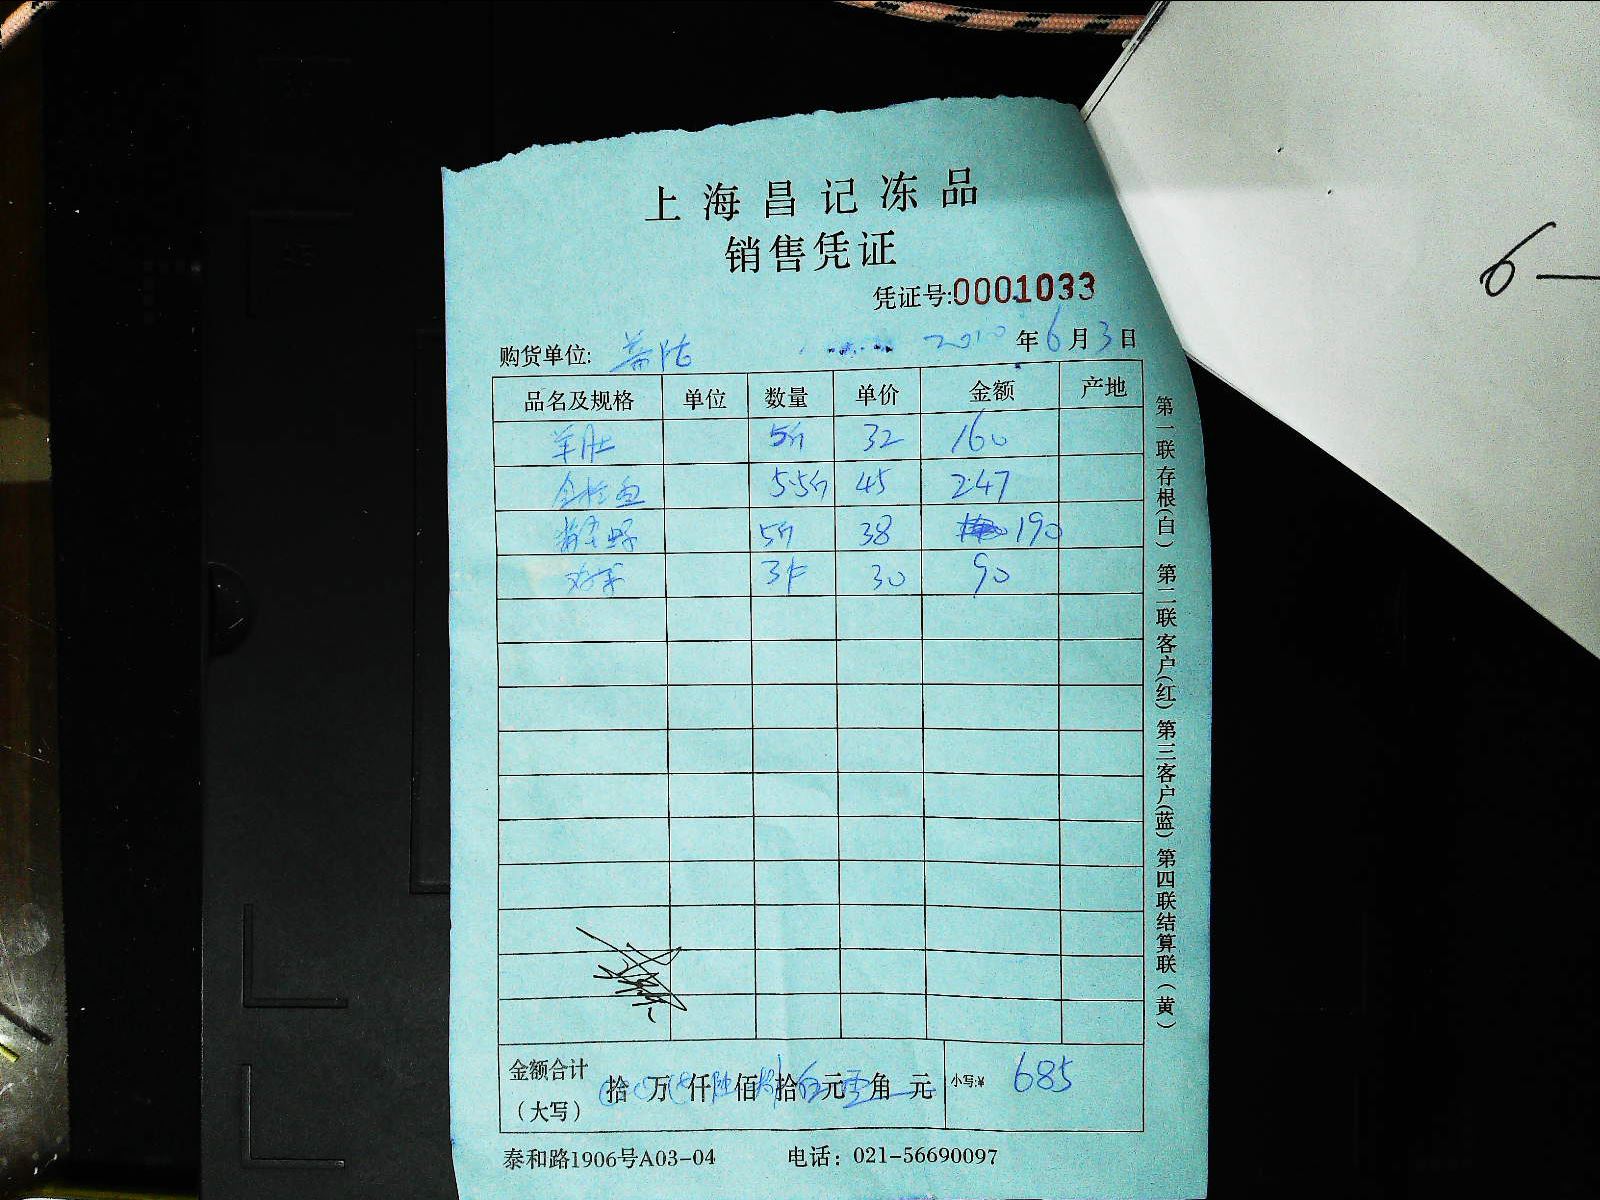 上海昌记冻品
销售凭证
凭证号:0001033
购货单位: 2010年6月3日
品名及规格 单位 数量 单价 金额 产地
羊肚 5斤 32 160
5.5斤 45 247
5斤 38 190
3斤 30 90
金额合计（大写） 拾 万 仟陆佰捌拾伍元零角 元 小写:¥ 685
泰和路1906号A03-04 电话：021-56690097
第一联存根(白) 第二联客户(红) 第三客户(蓝) 第四联结算联（黄）
6—